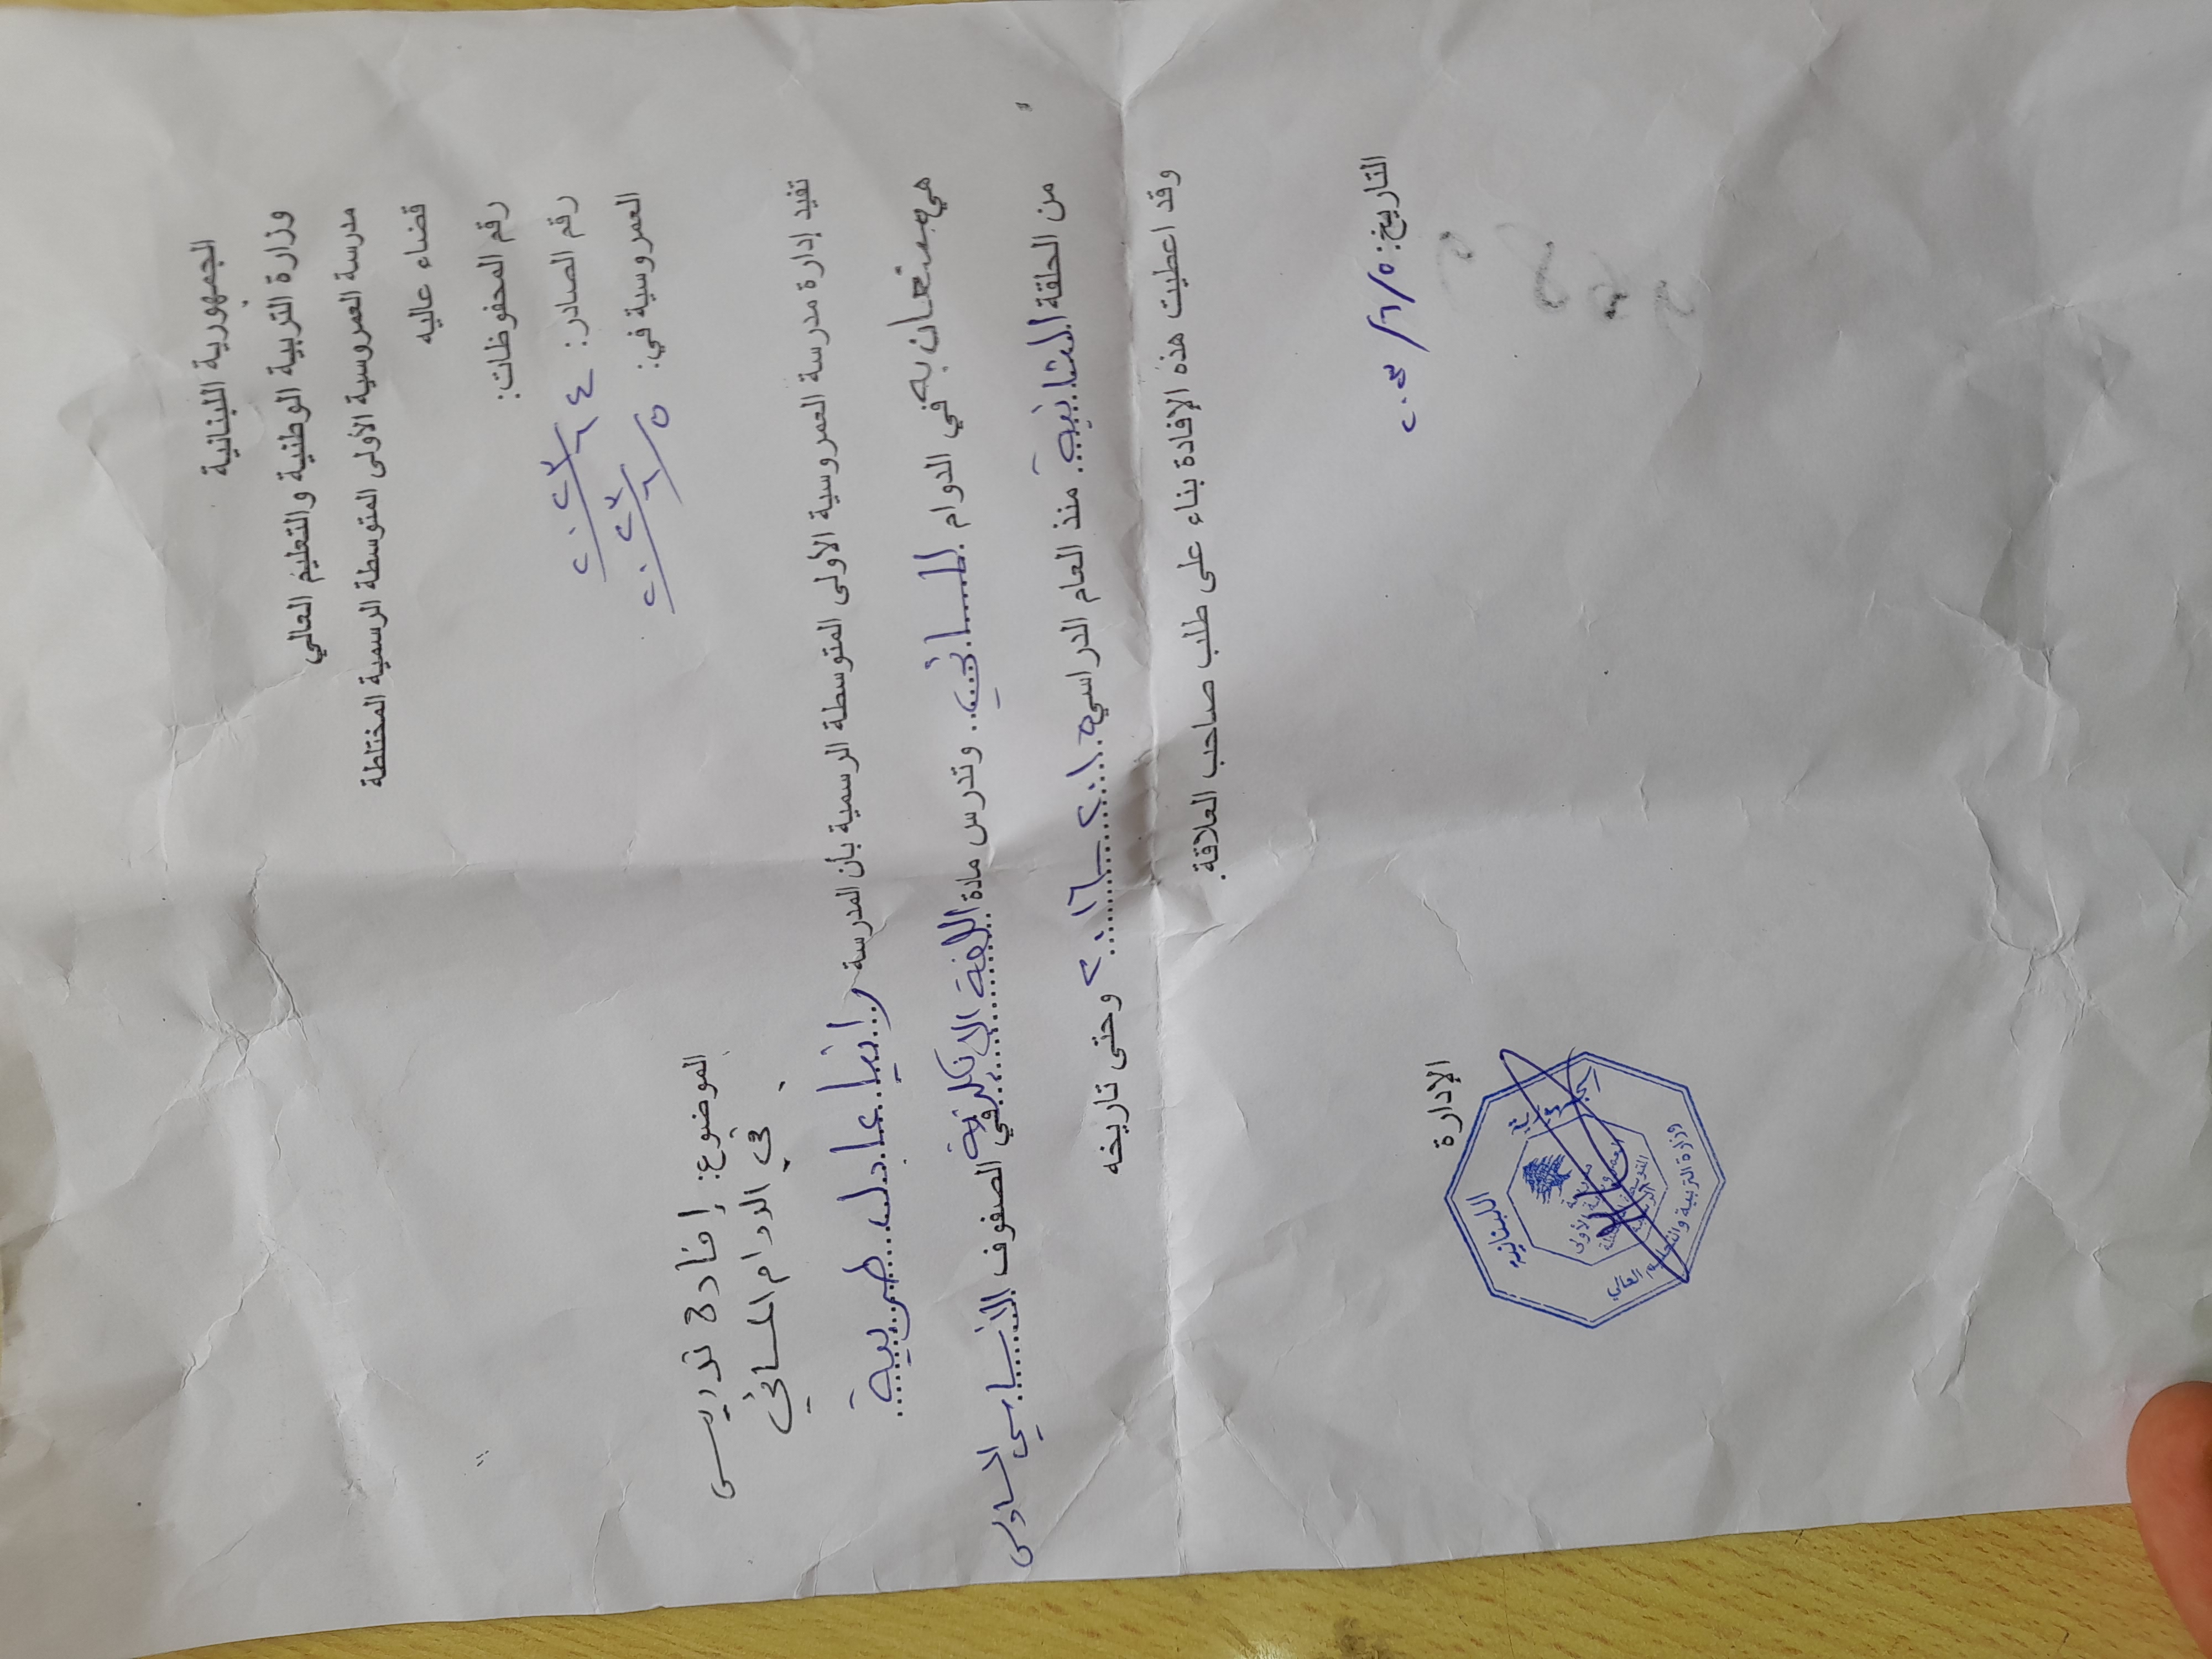 الجمهورية اللبنانية
وزارة التربية الوطنية والتعليم العالي
مدرسة العمروسية الأولى المتوسطة الرسمية المختلطة
قضاء عاليه
رقم المحفوظات:
رقم الصادر: ٢٤/٢٠٢٣
العمروسية في: ٥/٦/٢٠٢٣
الموضوع: إفادة تدريس
في الدوام المسائي
تفيد إدارة مدرسة العمروسية الأولى المتوسطة الرسمية بأن المدرسة رانيا عادل ضريبية
هي مستعان به في الدوام المسائي وتدرس مادة اللغة الانكليزية في الصفوف الاساسي
من الحلقة الثانية منذ العام الدراسي ٢٠١٥-٢٠١٦ وحتى تاريخه
وقد اعطيت هذه الإفادة بناء على طلب صاحب العلاقة.
التاريخ: ٥/٦/
الإدارة
الجمهورية اللبنانية
مدرسة
العمروسية الأولى
المتوسطة
الرسمية
وزارة التربية والتعليم العالي